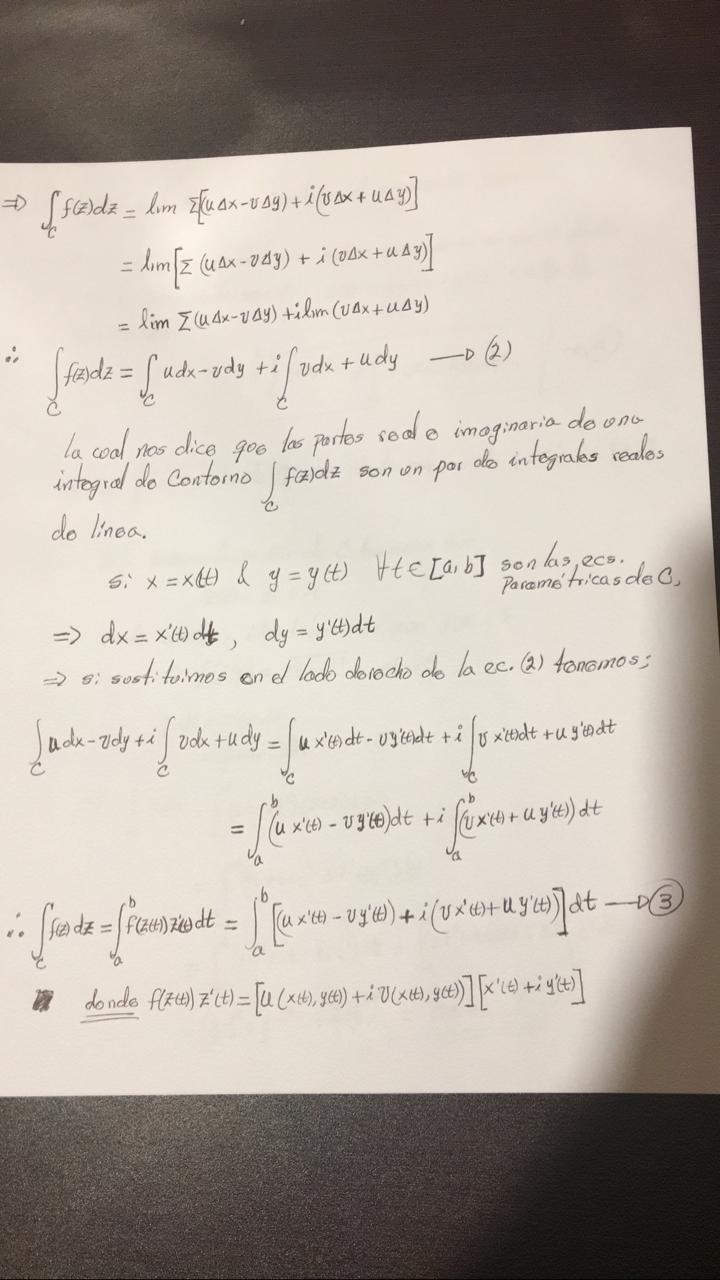 ⇒ ∫_C f(z)dz = lim Σ[(uΔx-vΔy)+i(vΔx+uΔy)]
= lim[Σ (uΔx-vΔy) + i (vΔx+uΔy)]
= lim Σ(uΔx-vΔy) + i lim (vΔx+uΔy)
∴ ∫_C f(z)dz = ∫_C udx-vdy + i∫_C vdx + udy → (2)
la cual nos dice que las partes real e imaginaria de una
integral de Contorno ∫_C f(z)dz son un par de integrales reales
de línea.
si x = x(t) & y = y(t) ∀t∈[a,b] son las ecs.
Paramétricas de C,
⇒ dx = x'(t)dt, dy = y'(t)dt
⇒ si sustituimos en el lado derecho de la ec. (2) tenemos;
∫_C udx-vdy+i∫_C vdx+udy = ∫_C u x'(t)dt - v y'(t)dt + i∫_C v x'(t)dt + u y'(t)dt
= ∫_a^b (u x'(t) - v y'(t))dt + i∫_a^b (v x'(t) + u y'(t))dt
∴ ∫_C f(z)dz = ∫_a^b f(z(t))z'(t)dt = ∫_a^b [(u x'(t) - v y'(t)) + i(v x'(t)+u y'(t))]dt → ③
donde f(z(t)) z'(t) = [u(x(t),y(t)) + i v(x(t),y(t))][x'(t)+i y'(t)]